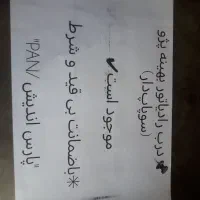 درب رادیاتور بهینه پژو
(سوپاپ‌دار)
موجود است ✔
*باضمانت بی قید و شرط
"پارس اندیش /PAN"